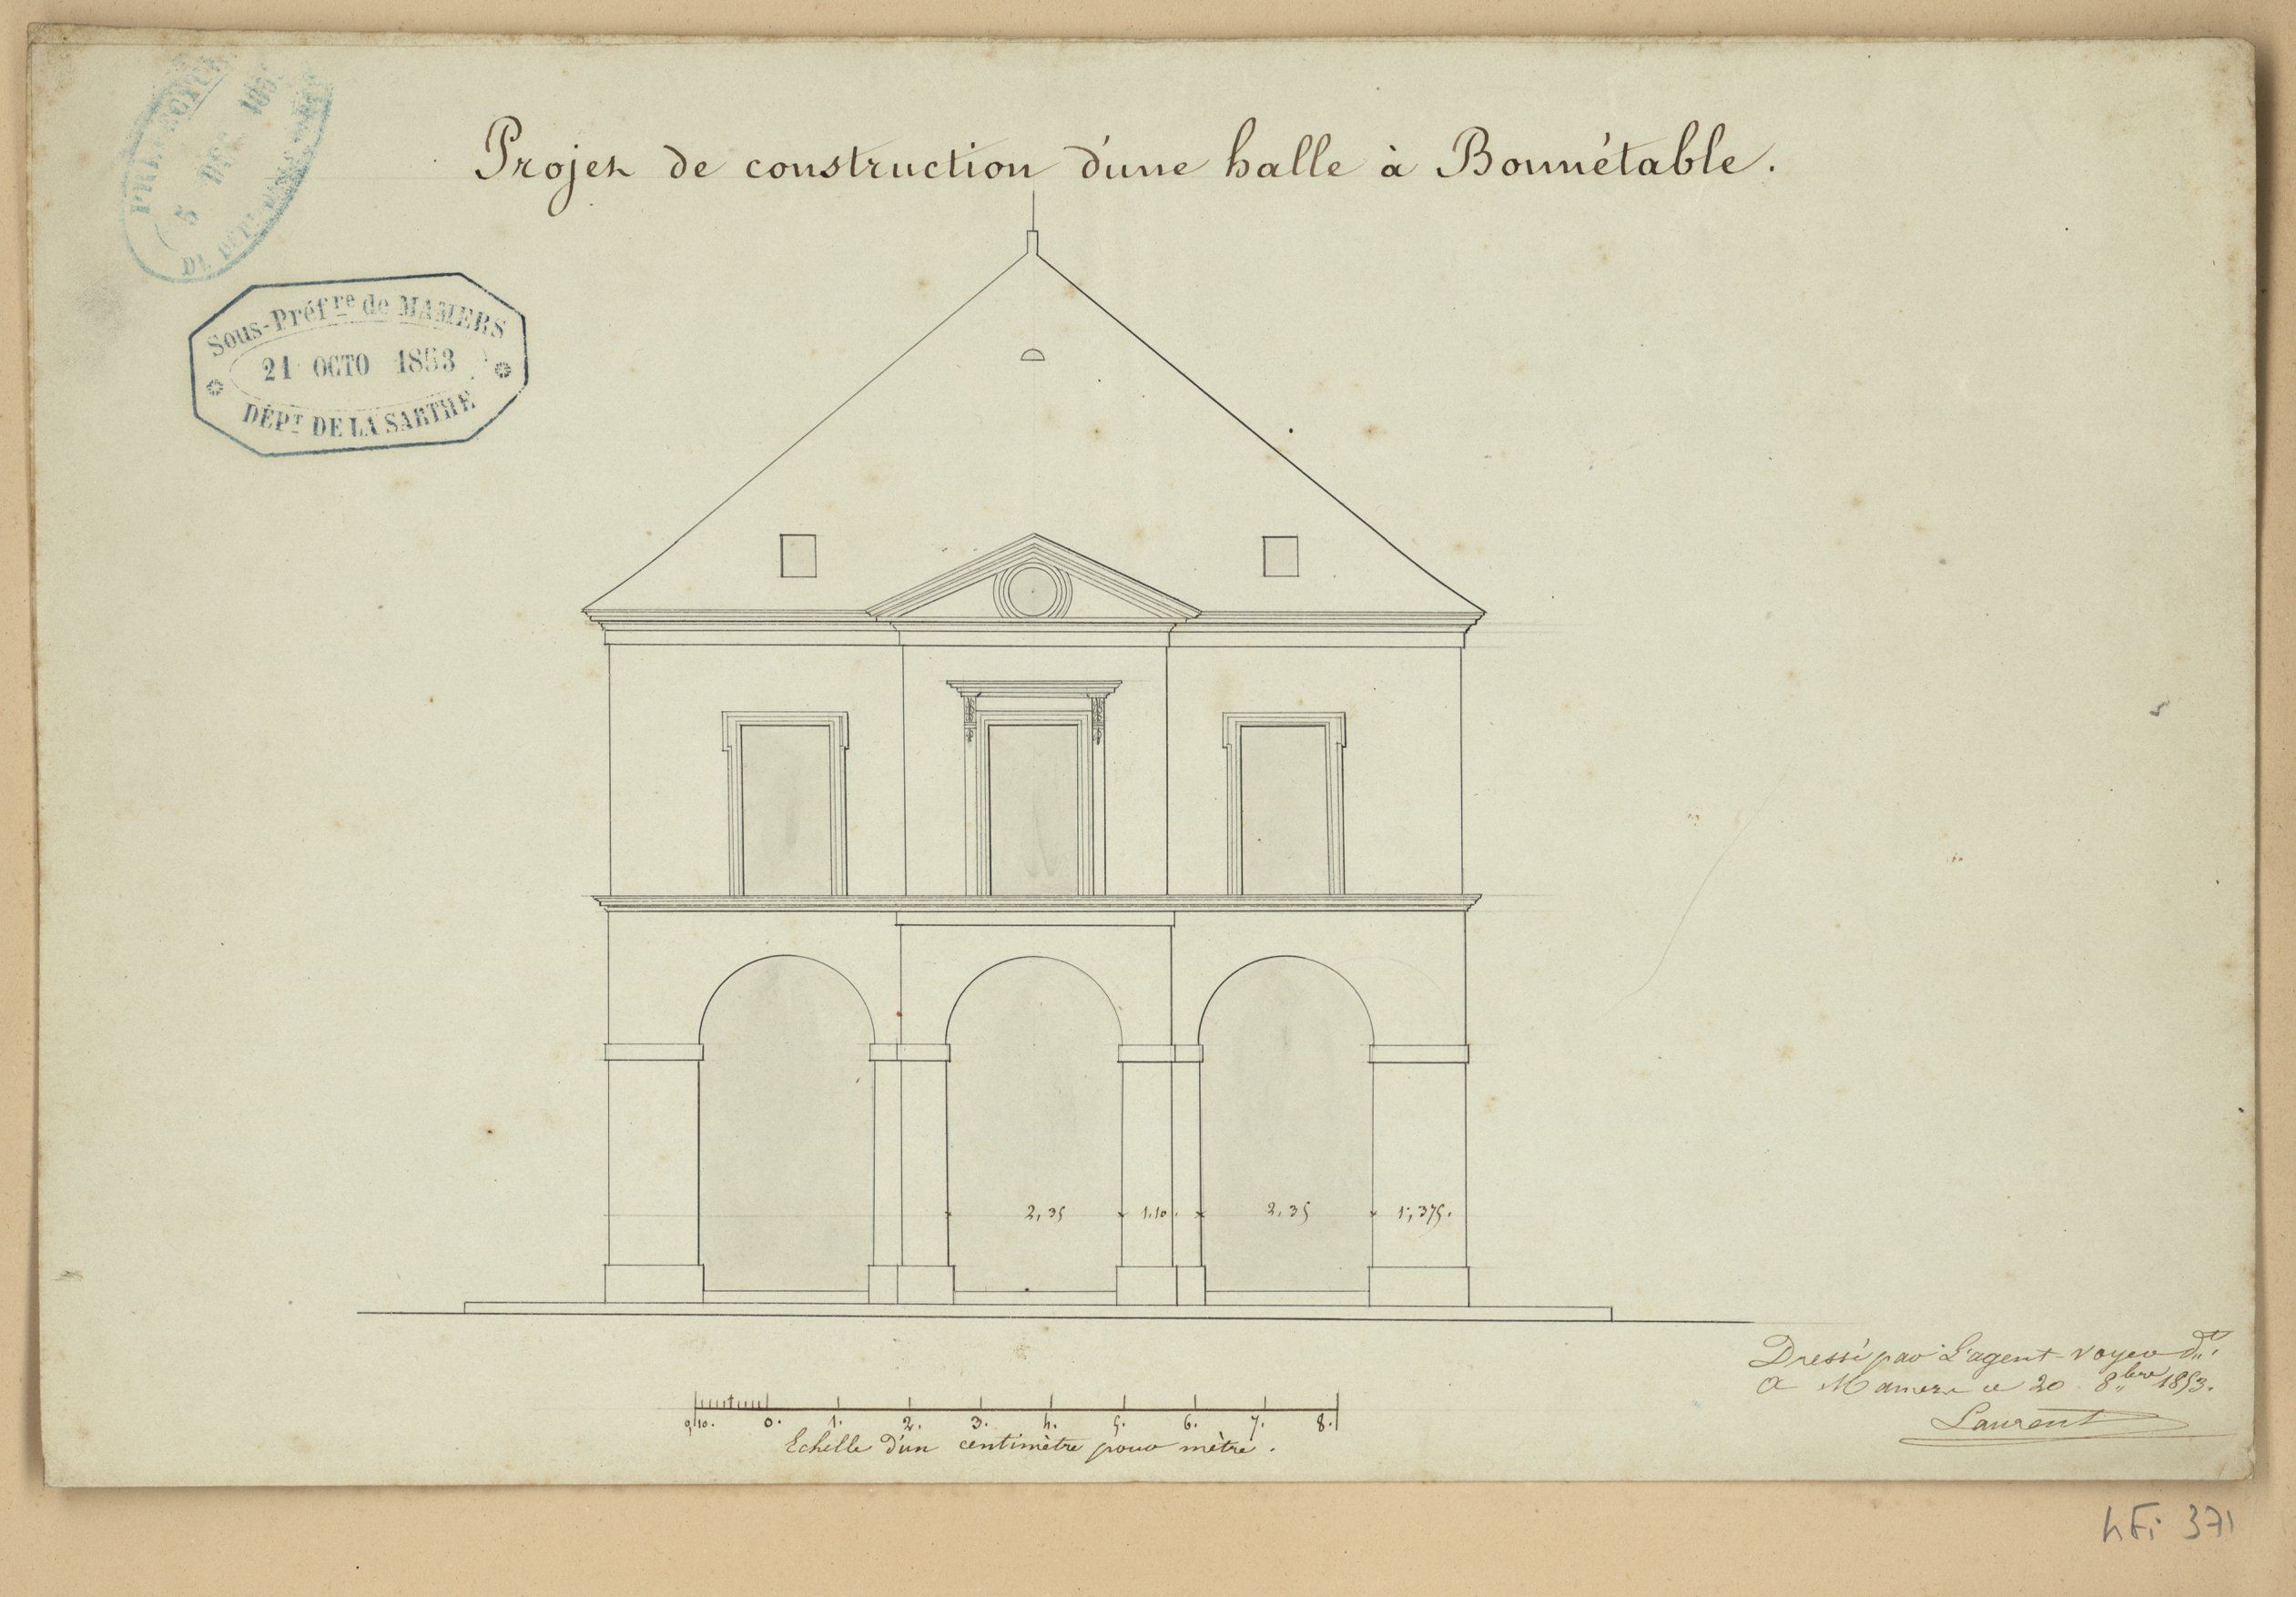 PRÉFECTURE
5 DÉC 185
DU DÉPT DE LA SARTHE
Projet de construction d'une halle à Bonnétable.
Sous-Préfre de MAMERS
21 OCTO 1853
DÉPT DE LA SARTHE
2,35 1.10. 2.35 1,375.
10. 0. 1. 2. 3. 4. 5. 6. 7. 8.
Echelle d'un centimètre pour mètre.
Dressé par L'agent-voyer
A Mamers ce 20 8bre 1853.
Laurent
4Fi 371